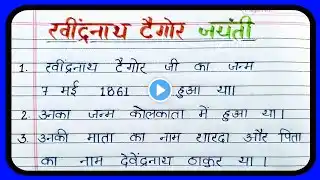 रवींद्रनाथ टैगोर जयंती
1. रवींद्रनाथ टैगोर जी का जन्म
7 मई 1861 हुआ था।
2. उनका जन्म कोलकाता में हुआ था।
3. उनकी माता का नाम शारदा और पिता
का नाम देवेंद्रनाथ ठाकुर था।